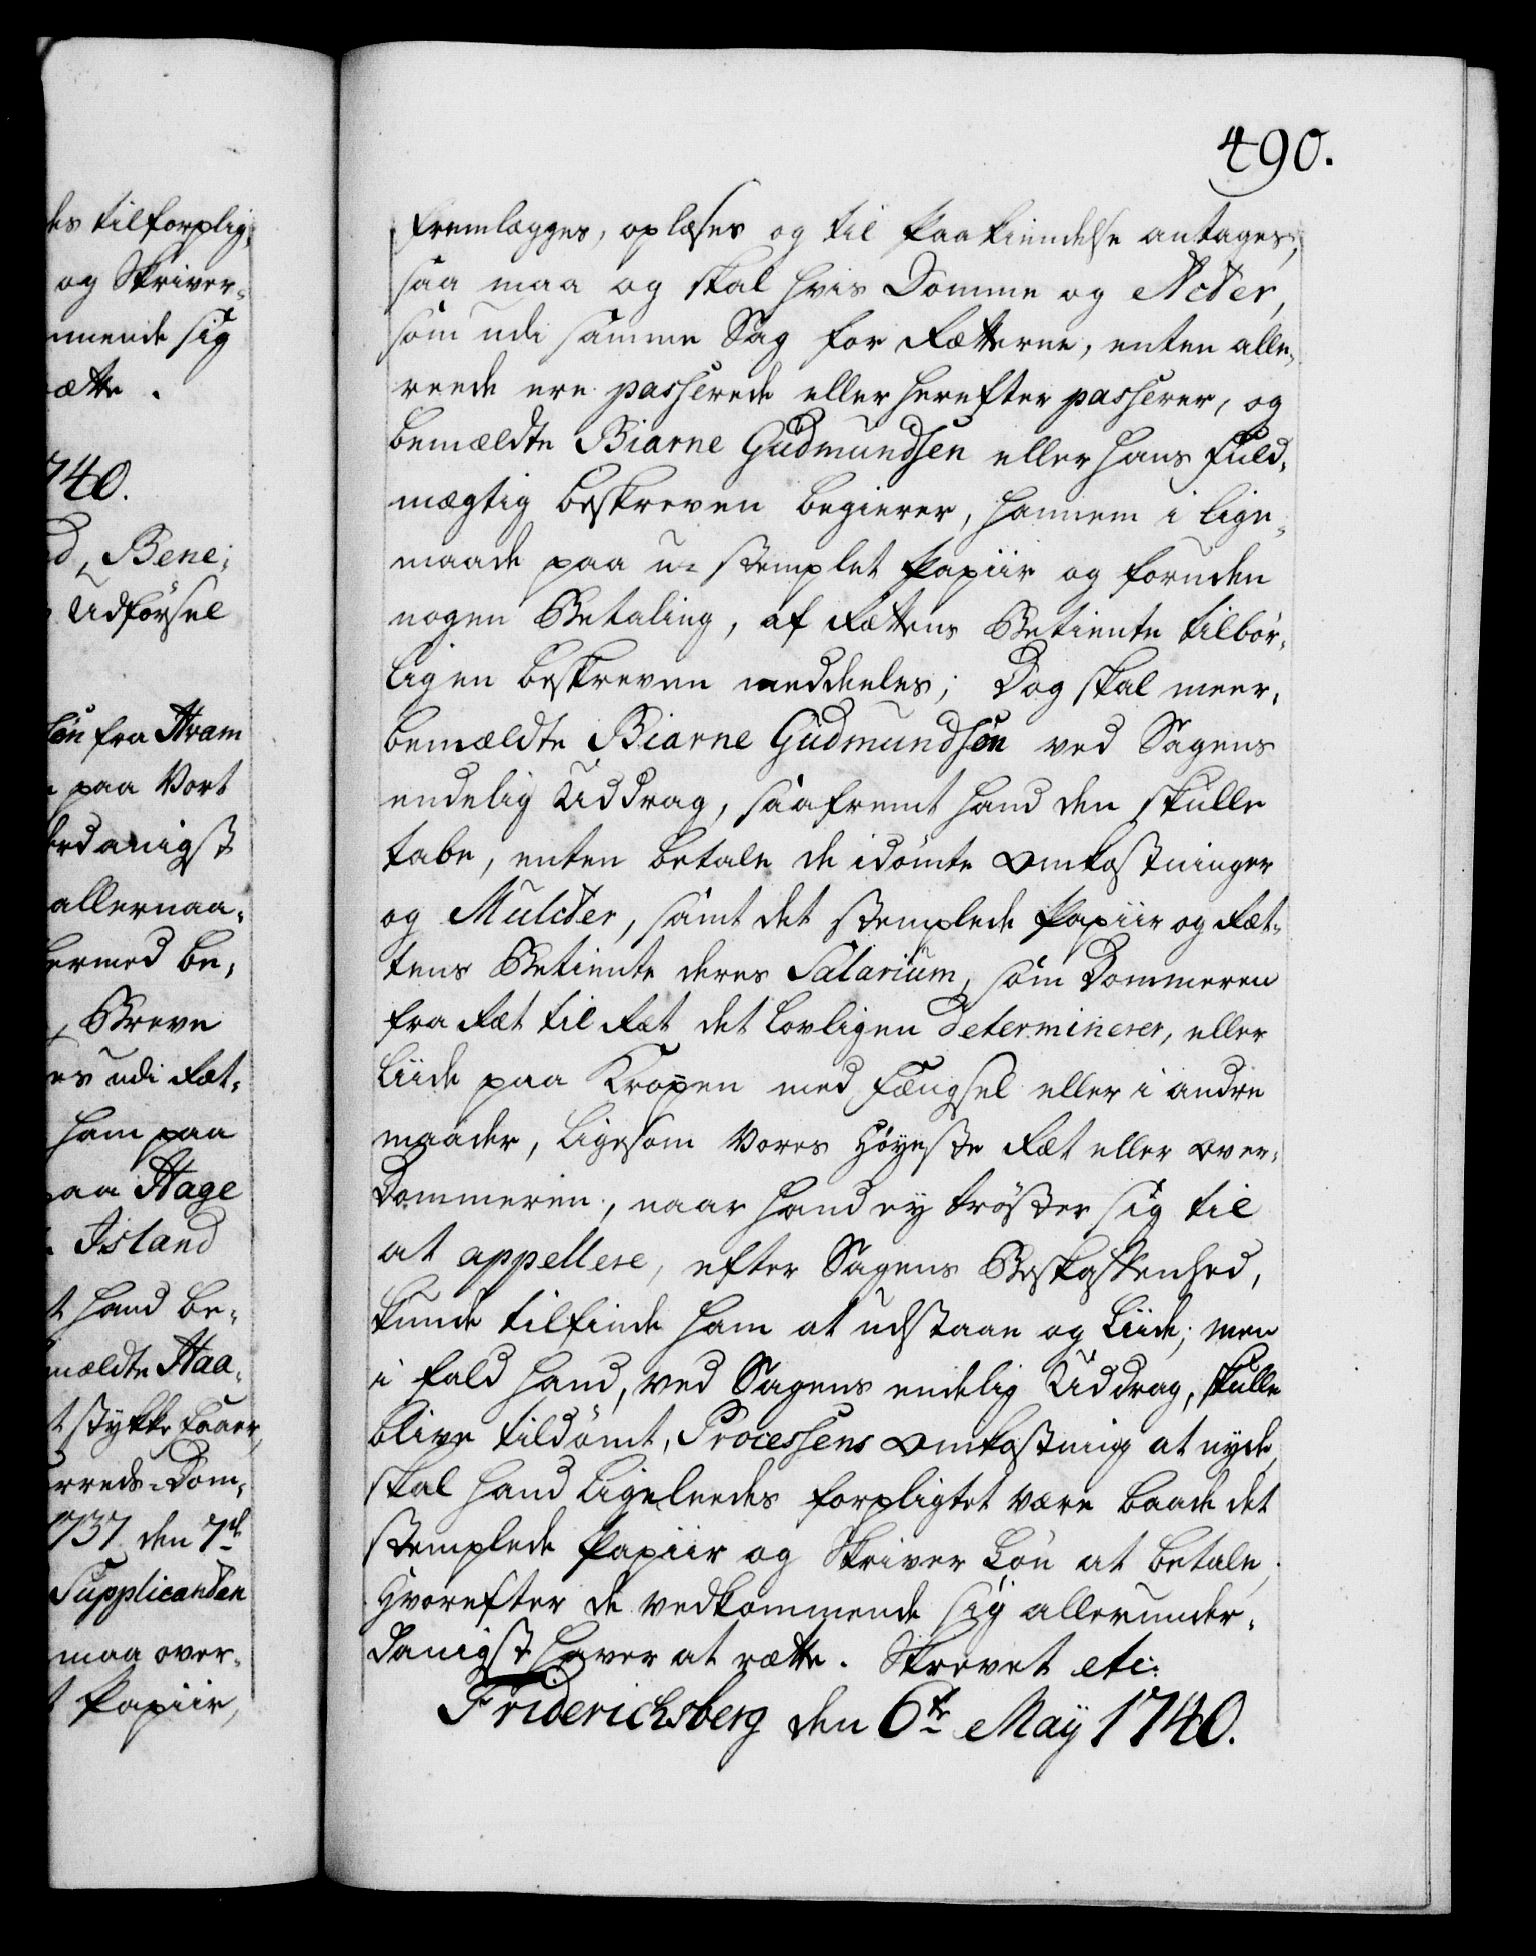 des tilforplig¬
og Skriver¬
mmende sig
rætte.
740.
d, Bene¬
Udførsel
søn fra Hvam
paa Vort
erdanigst
allernaa¬
hermed be¬
, Breve
es udi Ræt¬
ham paa
paa Hage
Island
t hand be¬
mældte Haa¬
t stykke
erreds-Dom¬
737 den 7de
Supplicanten
maa over¬
t Papiir,
490.
fremlægges, oplæses og til Paakiendelse antages,
saa maa og skal hvis Domme og Acter,
som udi samme Sag for Rætterne, enten alle¬
reede ere passerede eller herefter passerer, og
bemældte Biarne Gudmundsen eller hans Fuld¬
mægtig beskreven begierer, hannem i lige¬
maade paa u-stemplet Papiir og foruden
nogen Betaling, af Rættens Betiente tilbør¬
ligen beskreven meddeeles; Dog skal meer¬
bemældte Biarne Gudmundsen ved Sagens
endelig Uddrag, saafremt hand den skulle
tabe, enten betale de idømte Omkostninger
og Mulcter, samt det stemplede Papiir og Ræt¬
tens Betiente deres Salarium, som Dommeren
fra Ræt til Ræt det lovligen determinerer, eller
liide paa Kropen med Fængsel eller i andre
maader, ligesom Vores Høyeste Ræt eller Over¬
Dommeren, naar hand ey trøster sig til
at appellere, efter Sagens Beskaffenhed,
kunde tilfinde ham at udstaae og Liide; men
i fald hand, ved Sagens endelig Uddrag, skulle
blive tildømt, Processens Omkostning at nyde,
skal hand ligeleedes forpligtet være baade det
stemplede Papiir og Skriver Løn at betale,
Hvorefter de vedkommende sig allerunder¬
danigst haver at rætte. Skrevet etc:
Friderichsberg den 6te Maij 1740.